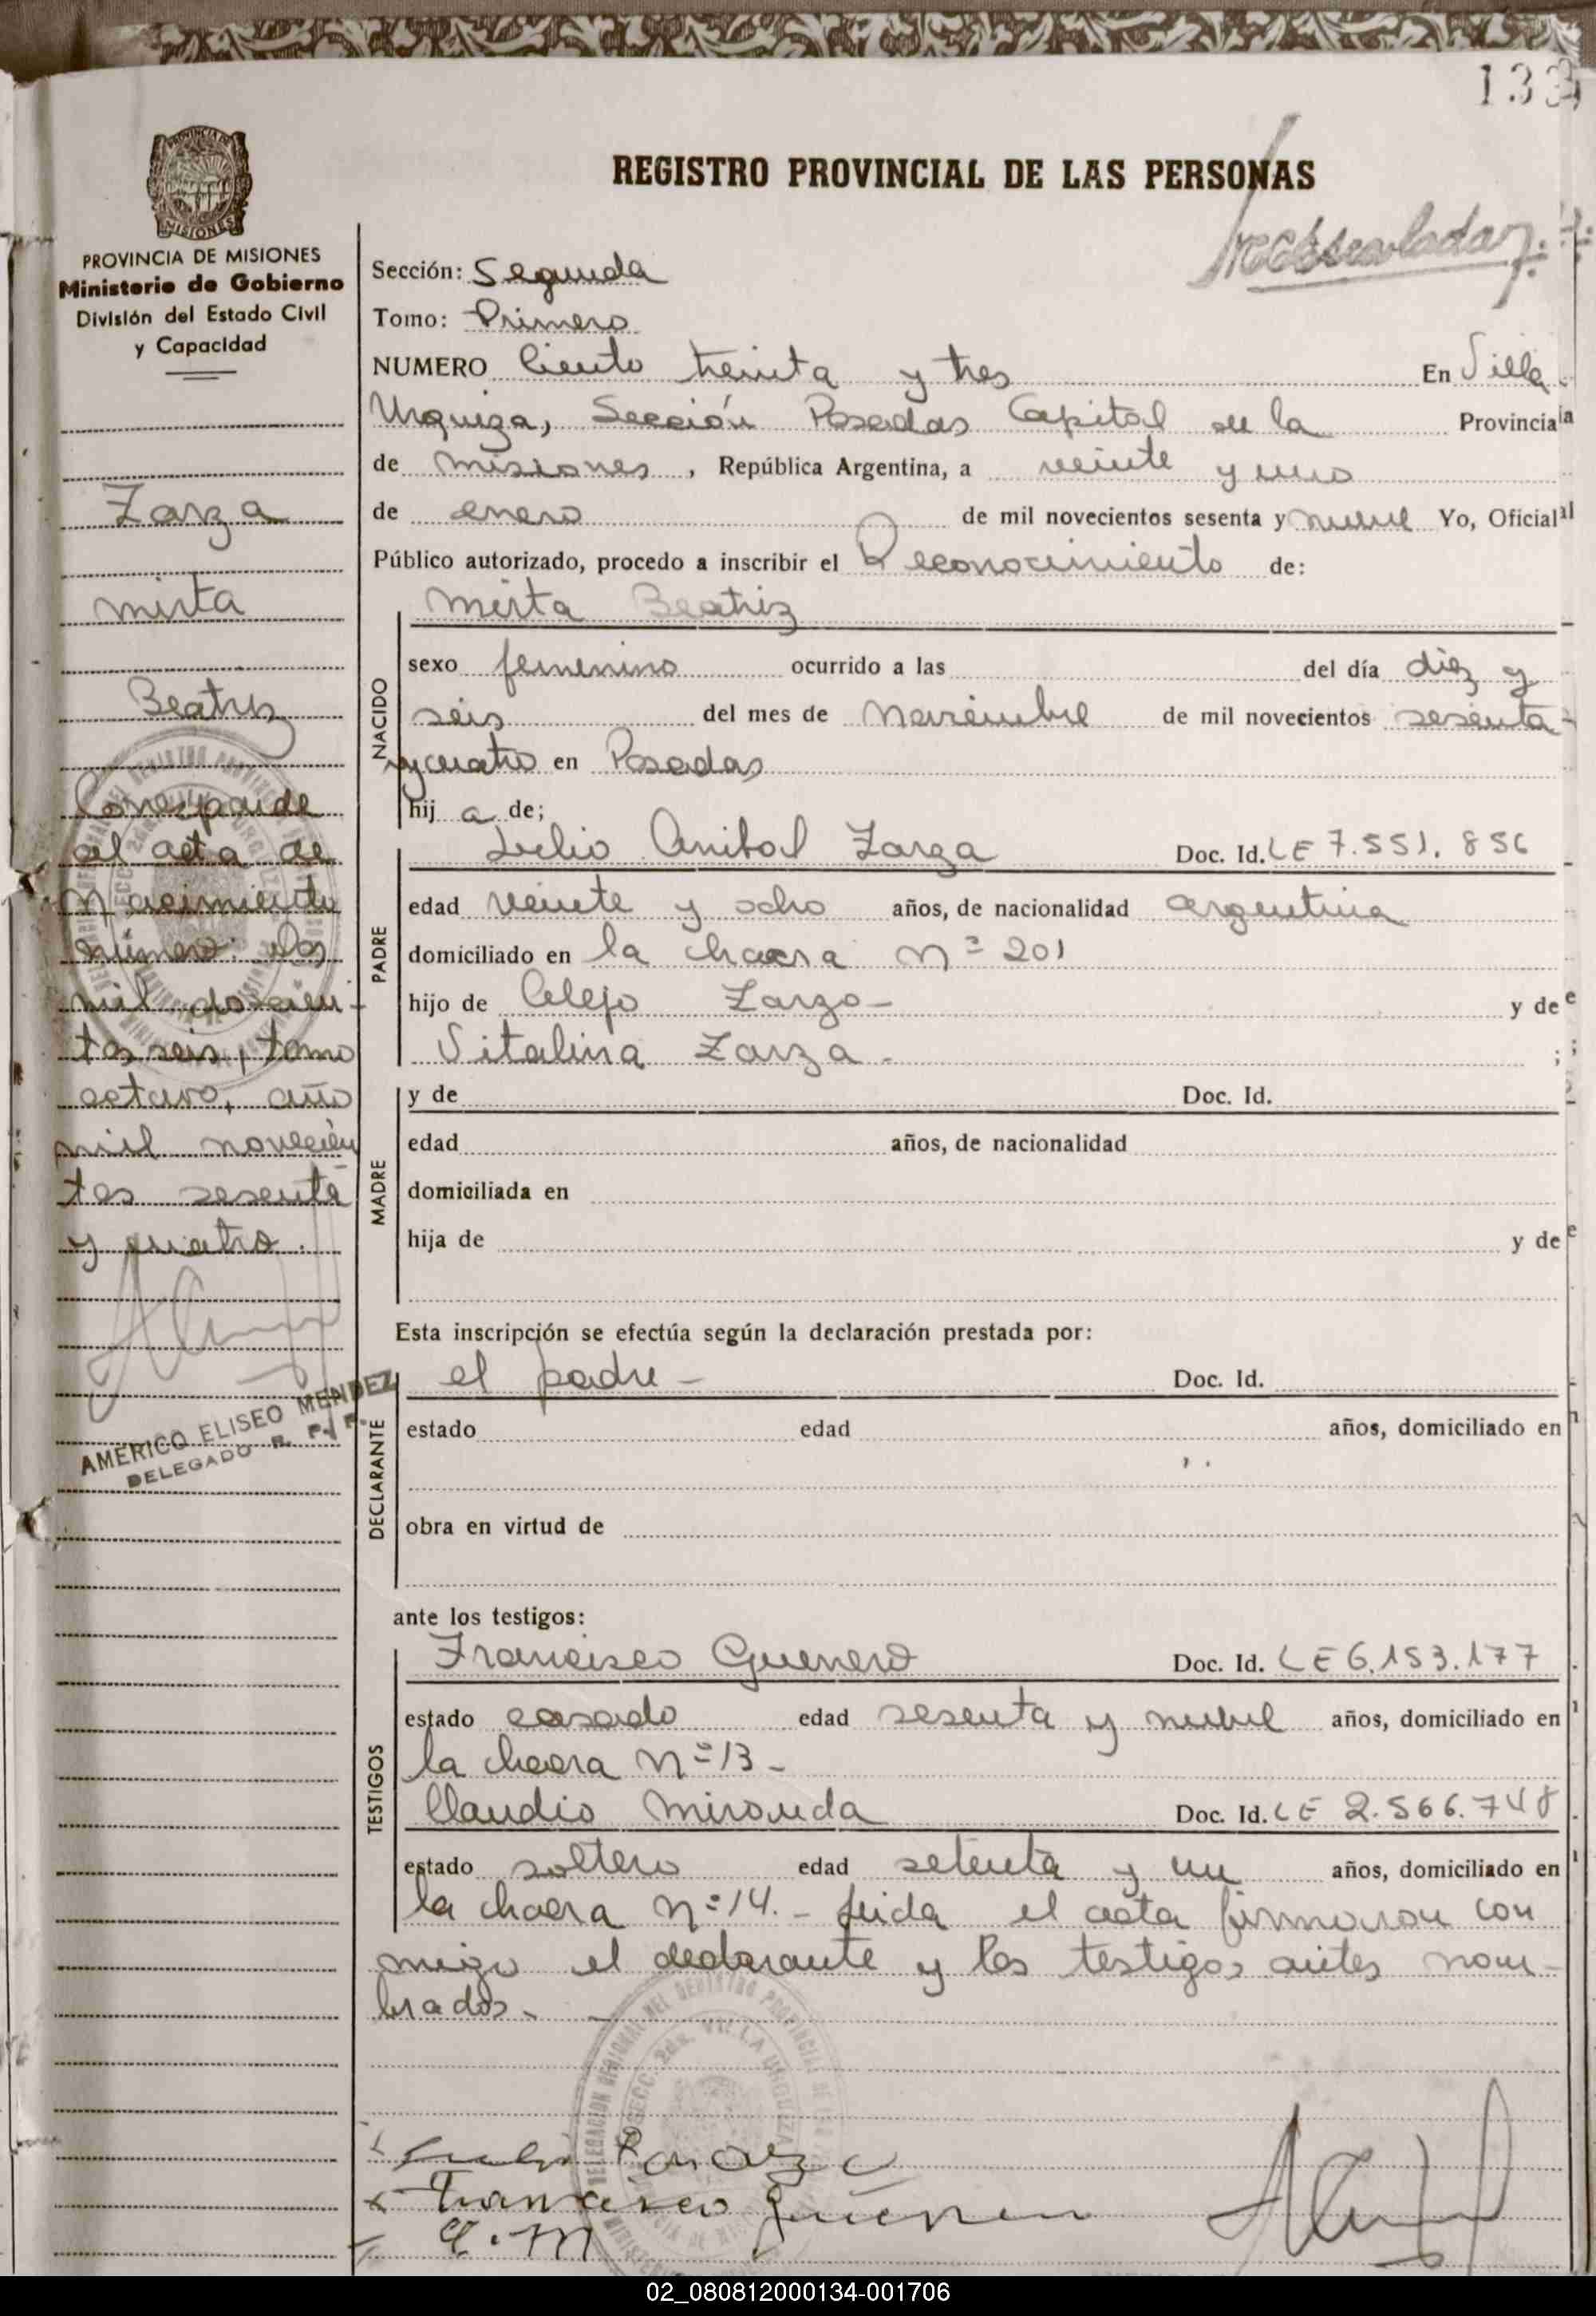 133
REGISTRO PROVINCIAL DE LAS PERSONAS
MISIONES
PROVINCIA DE MISIONES
Ministerio de Gobierno
División del Estado Civil
y Capacidad
Zarza
mirta
Beatriz
Corresponde
al acta de
Nacimiento
número: dos
mil doscien-
tos seis, tomo
octavo, año
mil novecien
tos sesenta
y cuatro.
AMERICO ELISEO MENDEZ
DELEGADO R. P. P.
Sección: Segunda
Tomo: Primero
NUMERO Ciento treinta y tres En Villa
Urquiza, Sección Posadas Capital de la Provincia
de misiones, República Argentina, a veinte y uno
de enero de mil novecientos sesenta y nueve Yo, Oficial
Público autorizado, procedo a inscribir el Reconocimiento de:
NACIDO
Mirta Beatriz
sexo femenino ocurrido a las del día diez y
seis del mes de Noviembre de mil novecientos sesenta
y cuatro en Posadas
hij a de;
PADRE
Julio Anibal Zarza Doc. Id. LE 7.551.856
edad veinte y ocho años, de nacionalidad argentina
domiciliado en la chacra nº 201
hijo de Alejo Zarza - y de
Vitalina Zarza - ;
MADRE
y de Doc. Id.
edad años, de nacionalidad
domiciliada en
hija de y de
Esta inscripción se efectúa según la declaración prestada por:
DECLARANTE
el padre - Doc. Id.
estado edad años, domiciliado en
obra en virtud de
ante los testigos:
TESTIGOS
Francisco Guerrero Doc. Id. LE 6.153.177
estado casado edad sesenta y nueve años, domiciliado en
la chacra Nº 13 -
Claudio Miranda Doc. Id. LE 2.566.748
estado soltero edad setenta y un años, domiciliado en
la chacra Nº 14. - leida el acta firmaron con
migo el declarante y los testigos antes nom-
brados. -
Francisco
C. M
02_080812000134-001706